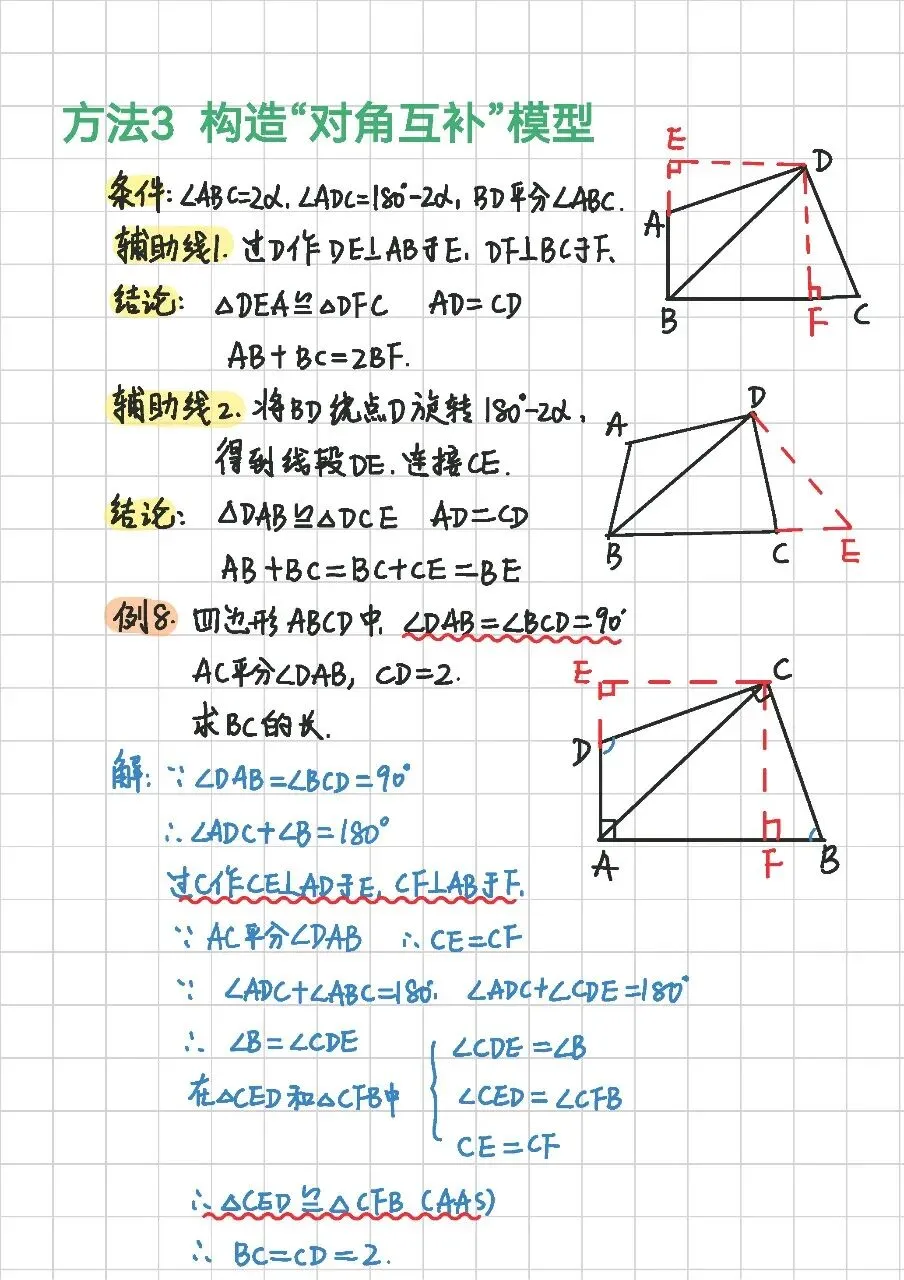 方法3 构造“对角互补”模型
条件: ∠ABC=2α, ∠ADC=180°-2α, BD平分∠ABC.
辅助线1. 过D作DE⊥AB于E, DF⊥BC于F.
结论: △DEA≌△DFC AD=CD
AB+BC=2BF.
E D A B F C
辅助线2. 将BD绕点D旋转180°-2α,
得到线段DE, 连接CE.
结论: △DAB≌△DCE AD=CD
AB+BC=BC+CE=BE
D A B C E
例8. 四边形ABCD中, ∠DAB=∠BCD=90°
AC平分∠DAB, CD=2.
求BC的长.
E C D A F B
解: ∵ ∠DAB=∠BCD=90°
∴∠ADC+∠B=180°
过C作CE⊥AD于E, CF⊥AB于F.
∵ AC平分∠DAB ∴ CE=CF
∵ ∠ADC+∠ABC=180°, ∠ADC+∠CDE=180°
∴ ∠B=∠CDE
在△CED和△CFB中
{ ∠CDE=∠B
∠CED=∠CFB
CE=CF
∴△CED≌△CFB (AAS)
∴ BC=CD=2.